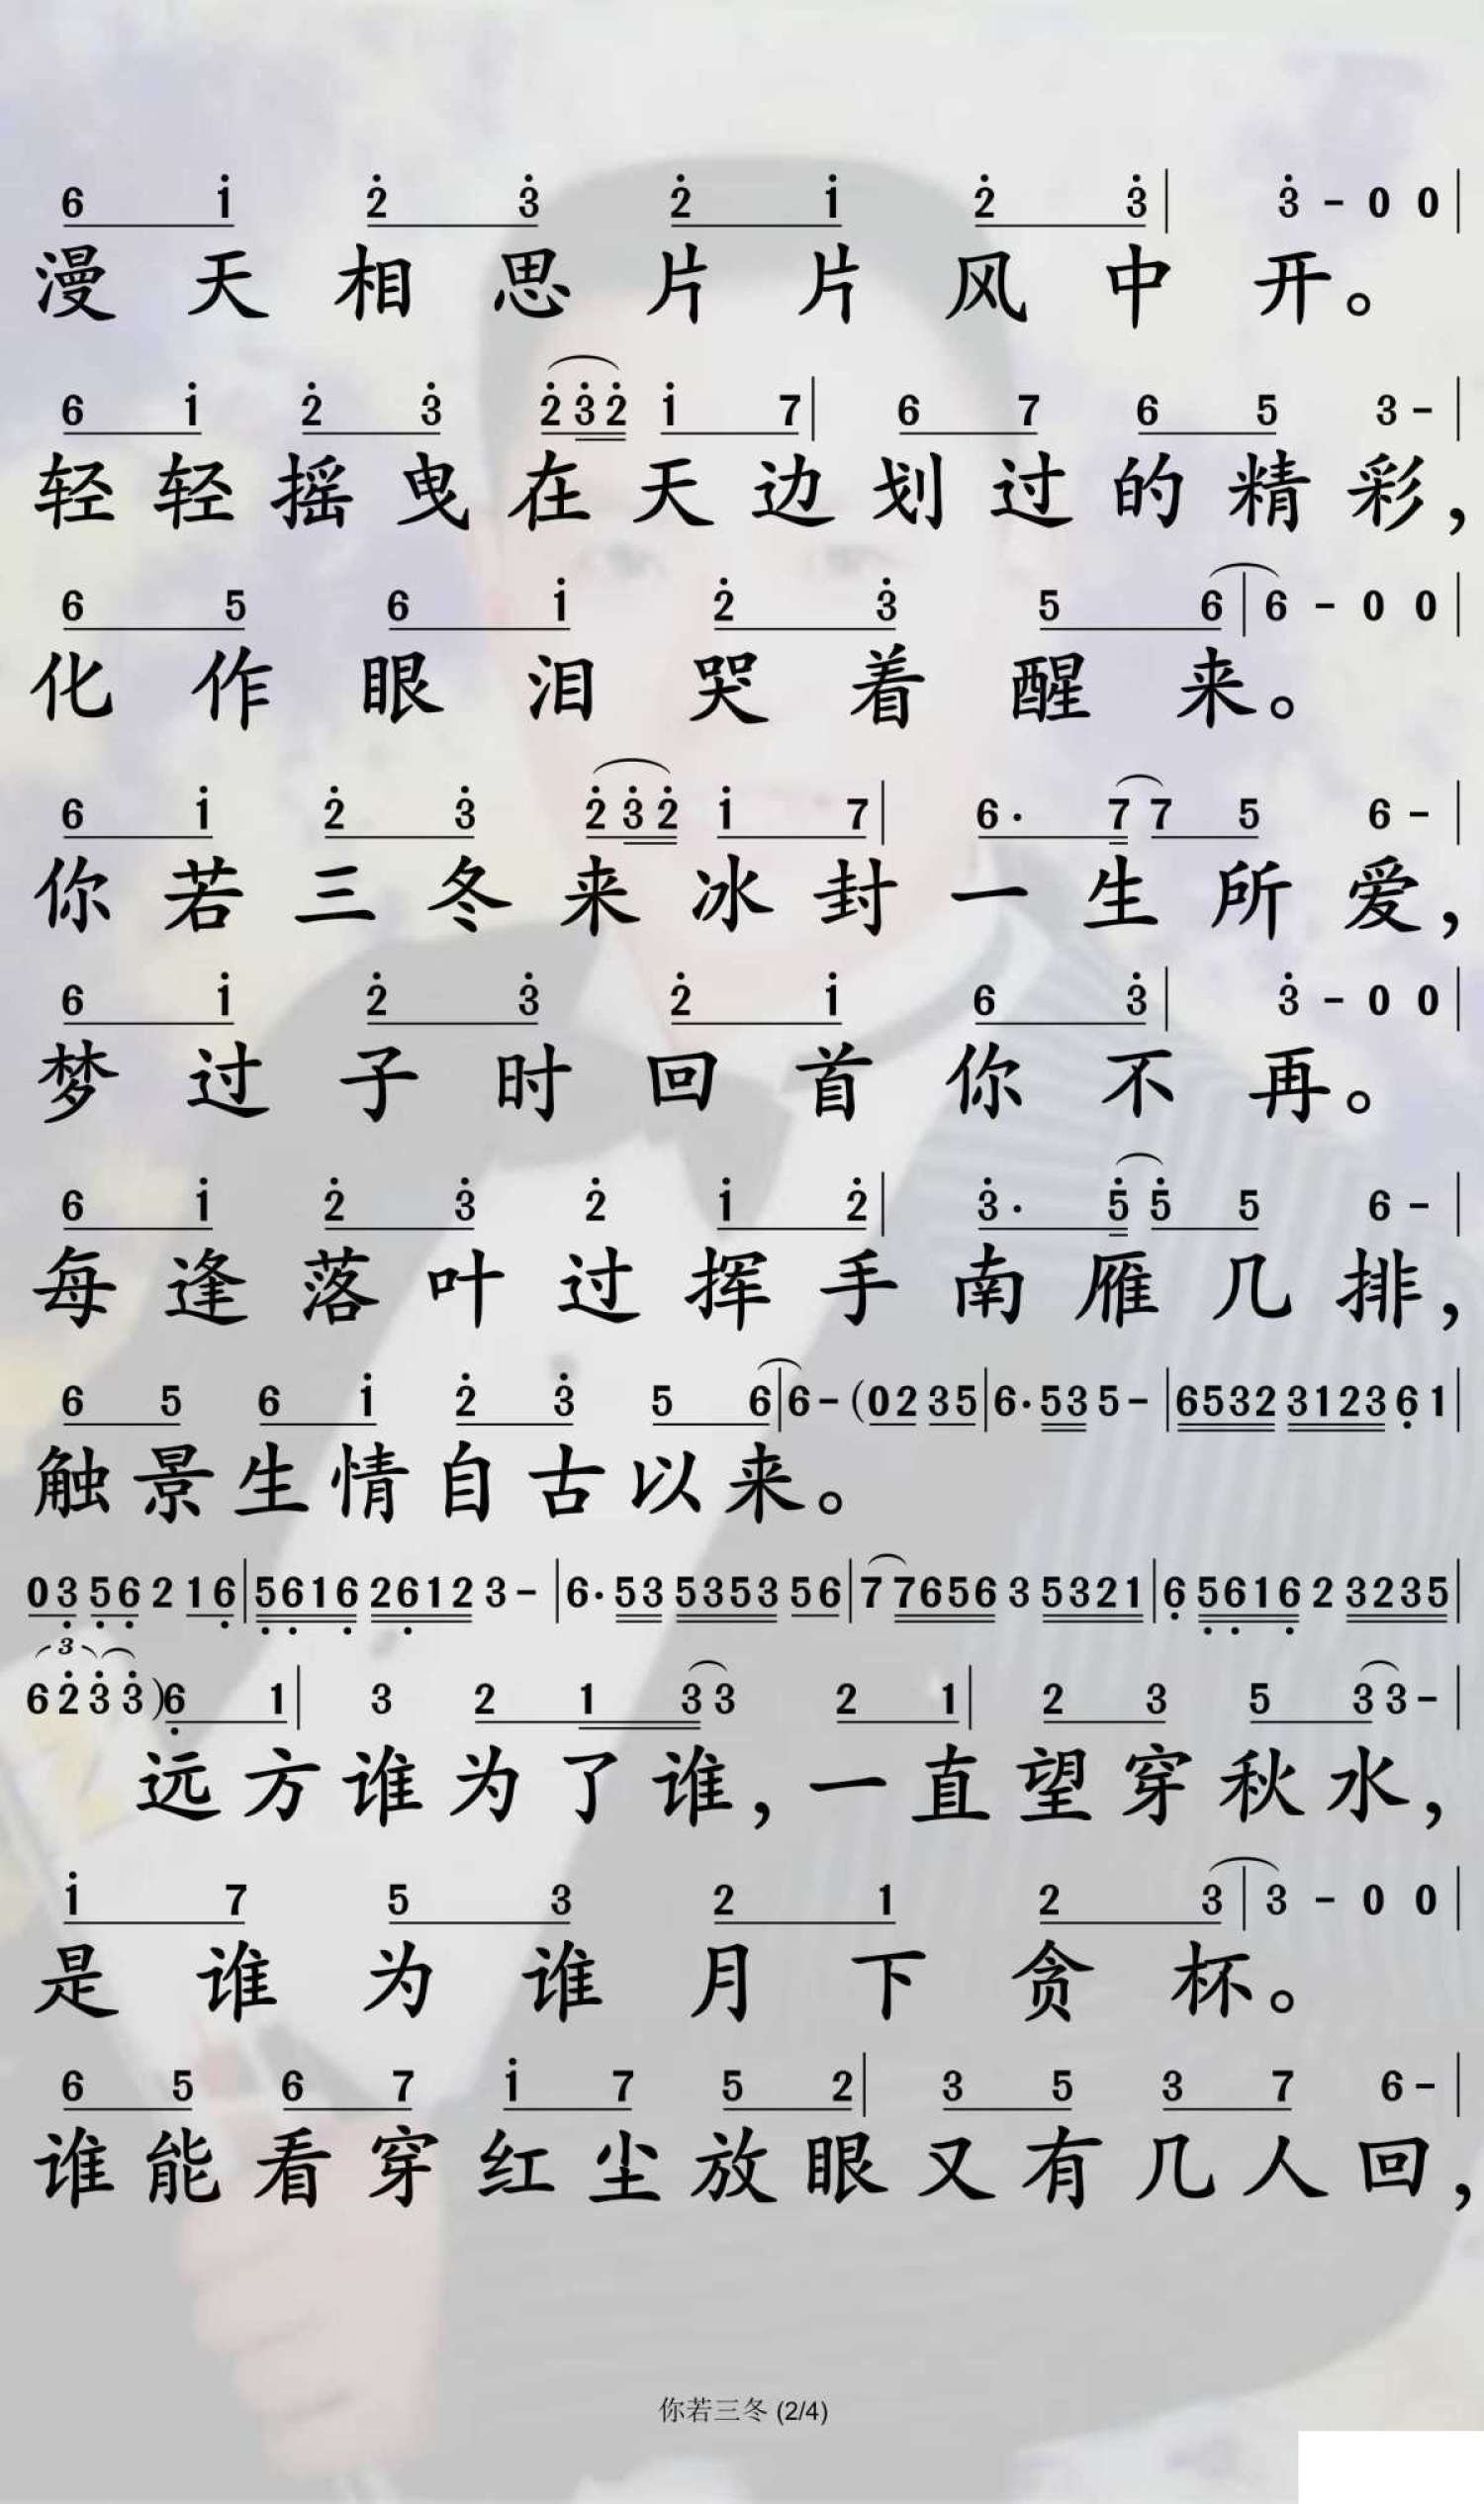 6 i̇ 2̇ 3̇ 2̇ i̇ 2̇ 3̇ | 3̇ - 0 0 |
漫天相思片片风中开。
6 i̇ 2̇ 3̇ 2̇3̇2̇ i̇ 7 | 6 7 6 5 3 - |
轻轻摇曳在天边划过的精彩，
6 5 6 i̇ 2̇ 3̇ 5 6 | 6 - 0 0 |
化作眼泪哭着醒来。
6 i̇ 2̇ 3̇ 2̇3̇2̇ i̇ 7 | 6· 7 7 5 6 - |
你若三冬来冰封一生所爱，
6 i̇ 2̇ 3̇ 2̇ i̇ 6 3̇ | 3̇ - 0 0 |
梦过子时回首你不再。
6 i̇ 2̇ 3̇ 2̇ i̇ 2̇ | 3̇· 5̇ 5̇ 5 6 - |
每逢落叶过挥手南雁几排，
6 5 6 i̇ 2̇ 3̇ 5 6 | 6 - (02 35 | 6· 53 5 - | 6532 3123 6̣ 1 |
触景生情自古以来。
03̣ 5̣6̣ 2 16̣ | 5̣6̣16̣ 26̣12 3 - | 6· 53 5353 56 | 7 7656 3 5321 | 6̣ 5̣6̣16̣ 2 3235 |
3
6 2̇ 3̇ 3̇ ) 6̣ 1 | 3 2 1 3 3 2 1 | 2 3 5 3 3 - |
远方谁为了谁，一直望穿秋水，
i̇ 7 5 3 2 1 2 3 | 3 - 0 0 |
是谁为谁月下贪杯。
6 5 6 7 i̇ 7 5 2 | 3 5 3 7 6 - |
谁能看穿红尘放眼又有几人回，
你若三冬 (2/4)